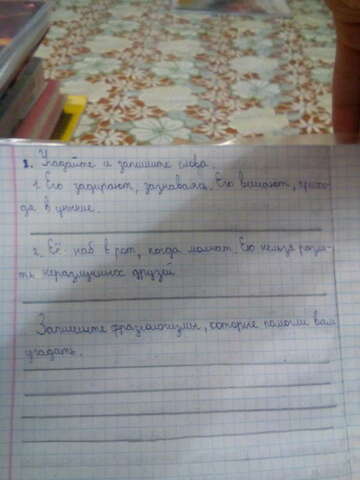 1. Угадайте и запишите слова.
1. Его задирают, зазнаваясь. Его вешают, прихо-
дя в уныние.
2. Её наб в рот, когда молчат. Ею нельзя разли-
ть неразлучных друзей
Запишите фразеологизмы, которые помогли вам
угадать.